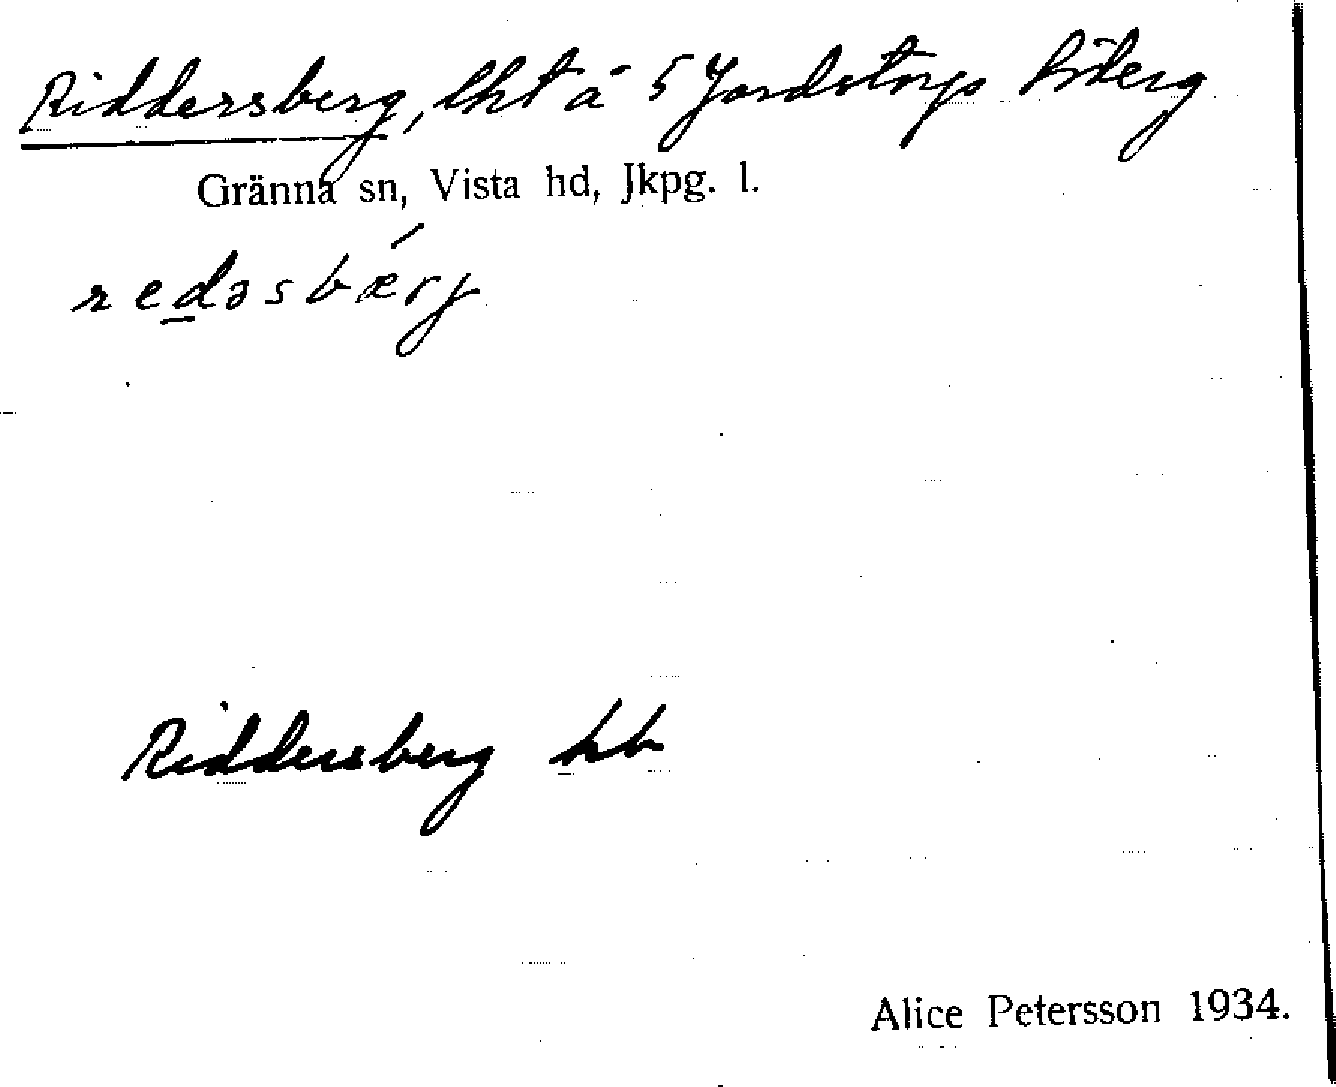 Riddersberg, lht å 5 Jordstorp
Gränna sn, Vista hd, Jkpg. l.
redəsbærj
Riddersberg hb
Alice Petersson 1934.